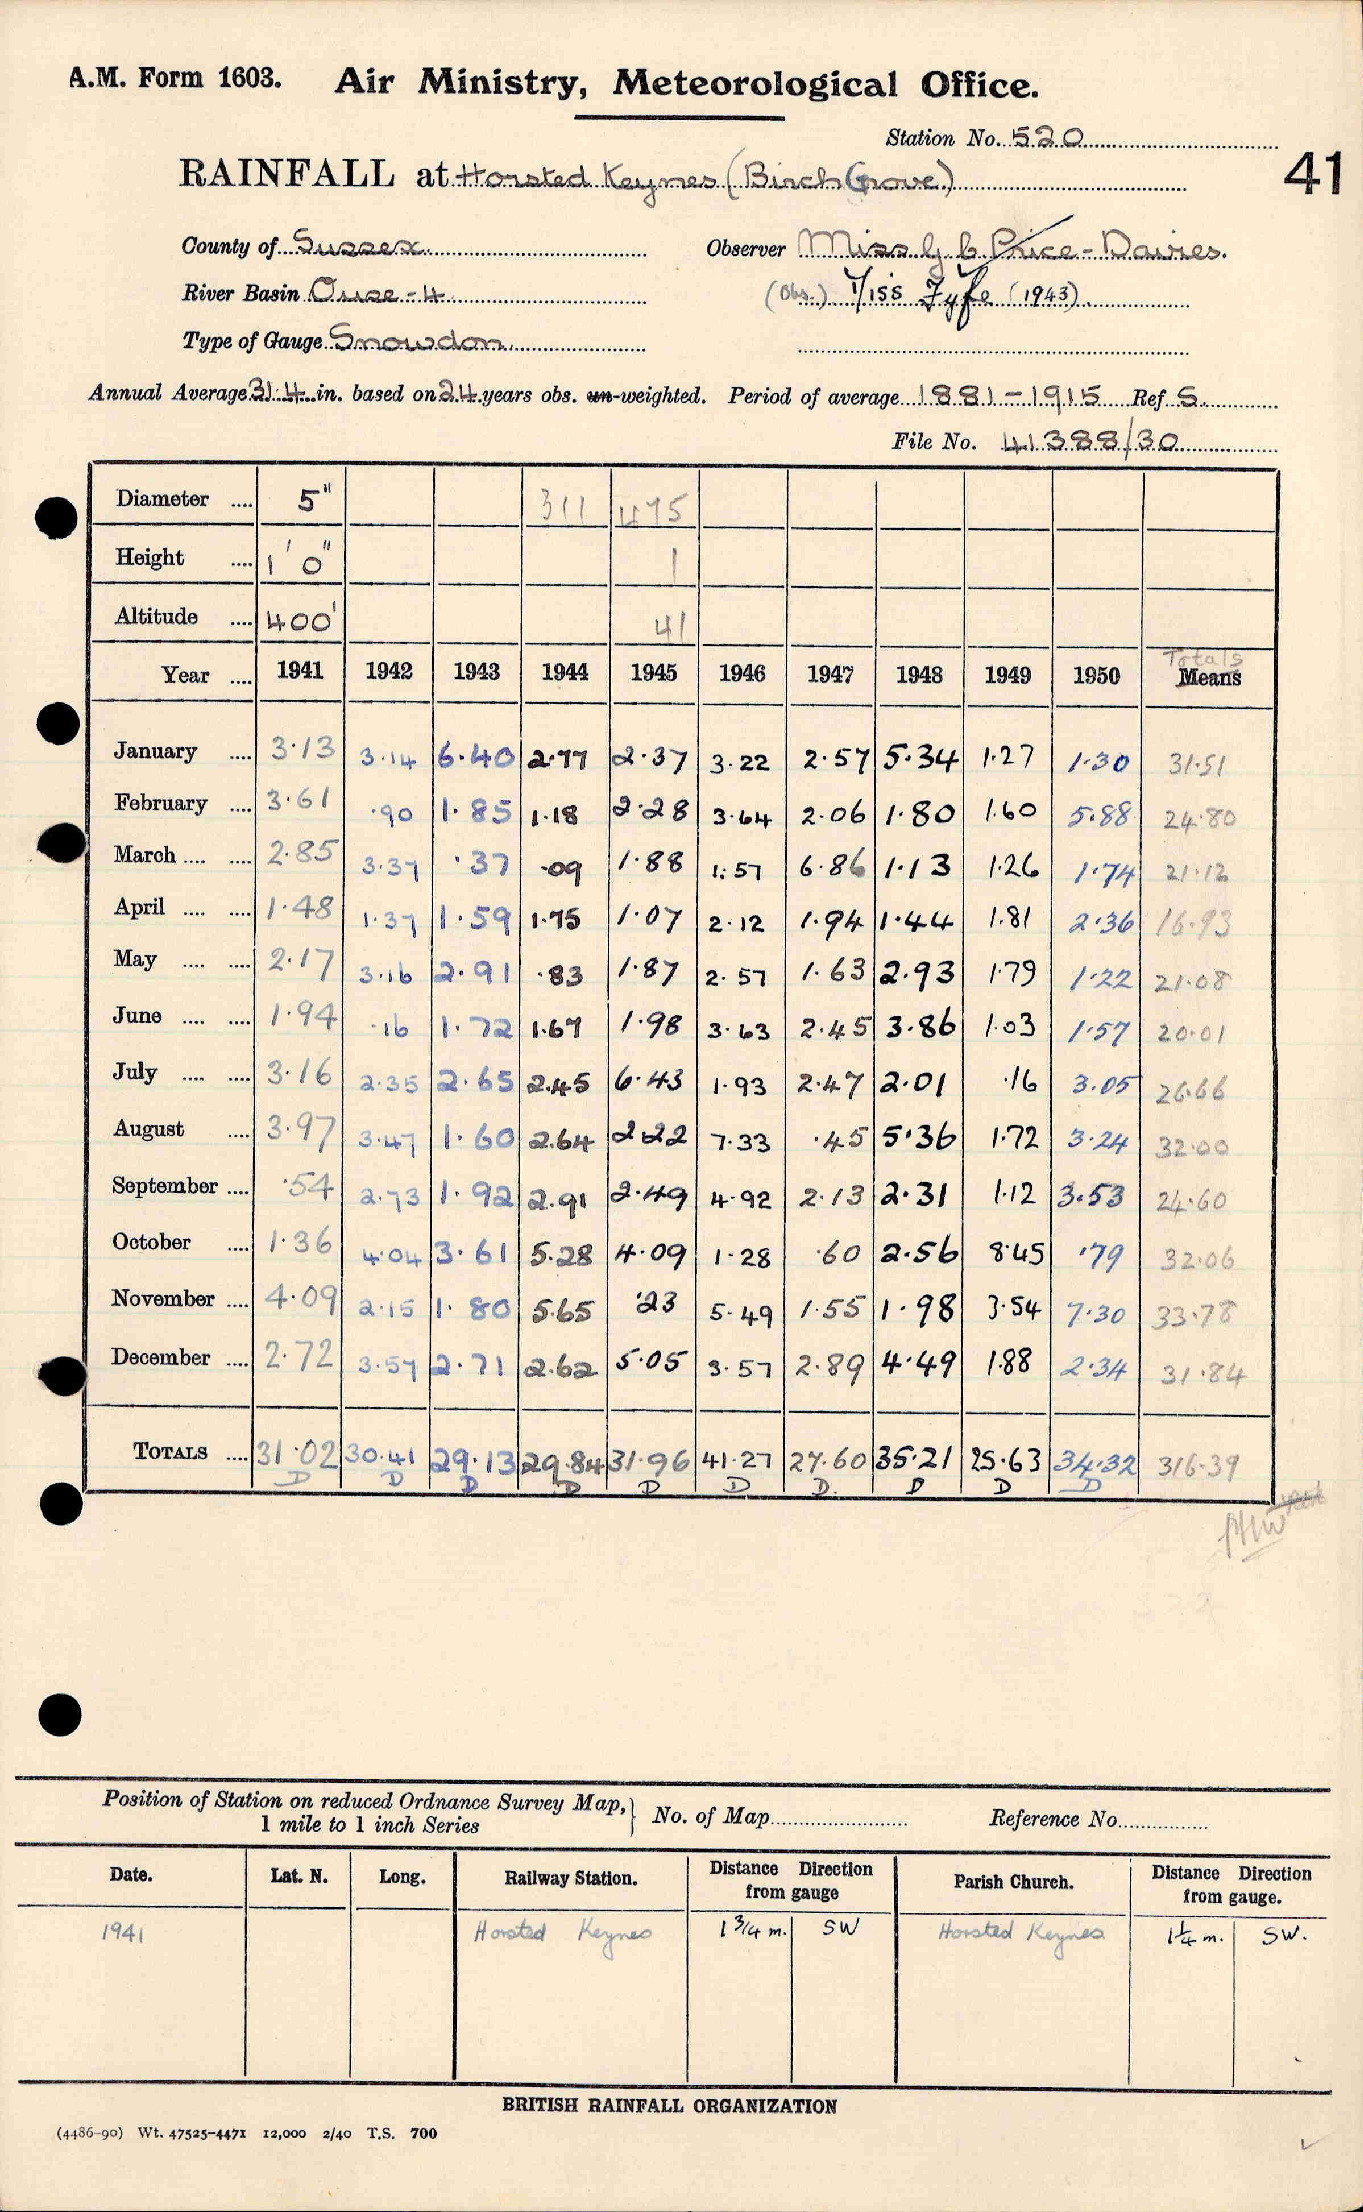 A.M. Form 1603. Air Ministry, Meteorological Office.
Station No. 520
41
RAINFALL at Horsted Keynes (Birch Grove.)
County of Sussex. Observer Miss G C Price-Davies.
River Basin Ouse-4 (Obs.) Miss Fyfe (1943)
Type of Gauge Snowdon
Annual Average 31.4 in. based on 24 years obs. un-weighted. Period of average 1881-1915 Ref S.
File No. 41388/30
Diameter .... 5" 311 475
Height .... 1' 0" 1
Altitude .... 400' 41
Totals
Year .... 1941 1942 1943 1944 1945 1946 1947 1948 1949 1950 Means
January .... 3.13 3.14 6.40 2.77 2.37 3.22 2.57 5.34 1.27 1.30 31.51
February .... 3.61 .90 1.85 1.18 2.28 3.64 2.06 1.80 1.60 5.88 24.80
March .... .... 2.85 3.37 .37 .09 1.88 1.57 6.86 1.13 1.26 1.74 21.12
April .... .... 1.48 1.37 1.59 1.75 1.07 2.12 1.94 1.44 1.81 2.36 16.93
May .... .... 2.17 3.16 2.91 .83 1.87 2.57 1.63 2.93 1.79 1.22 21.08
June .... .... 1.94 .16 1.72 1.67 1.98 3.63 2.45 3.86 1.03 1.57 20.01
July .... .... 3.16 2.35 2.65 2.45 6.43 1.93 2.47 2.01 .16 3.05 26.66
August .... 3.97 3.47 1.60 2.64 2.22 7.33 .45 5.36 1.72 3.24 32.00
September .... .54 2.73 1.92 2.91 2.49 4.92 2.13 2.31 1.12 3.53 24.60
October .... 1.36 4.04 3.61 5.28 4.09 1.28 .60 2.56 8.45 .79 32.06
November .... 4.09 2.15 1.80 5.65 .23 5.49 1.55 1.98 3.54 7.30 33.78
December .... 2.72 3.57 2.71 2.62 5.05 3.57 2.89 4.49 1.88 2.34 31.84
TOTALS .... 31.02 30.41 29.13 29.84 31.96 41.27 27.60 35.21 25.63 34.32 316.39
D D D D D D D. D D D
Position of Station on reduced Ordnance Survey Map,
1 mile to 1 inch Series
No. of Map Reference No.
Date. Lat. N. Long. Railway Station. Distance Direction from gauge Parish Church. Distance Direction from gauge.
1941 Horsted Keynes 1 3/4 m. SW Horsted Keynes 1 1/4 m. SW.
BRITISH RAINFALL ORGANIZATION
(4486-90) Wt. 47525-4471 12,000 2/40 T.S. 700